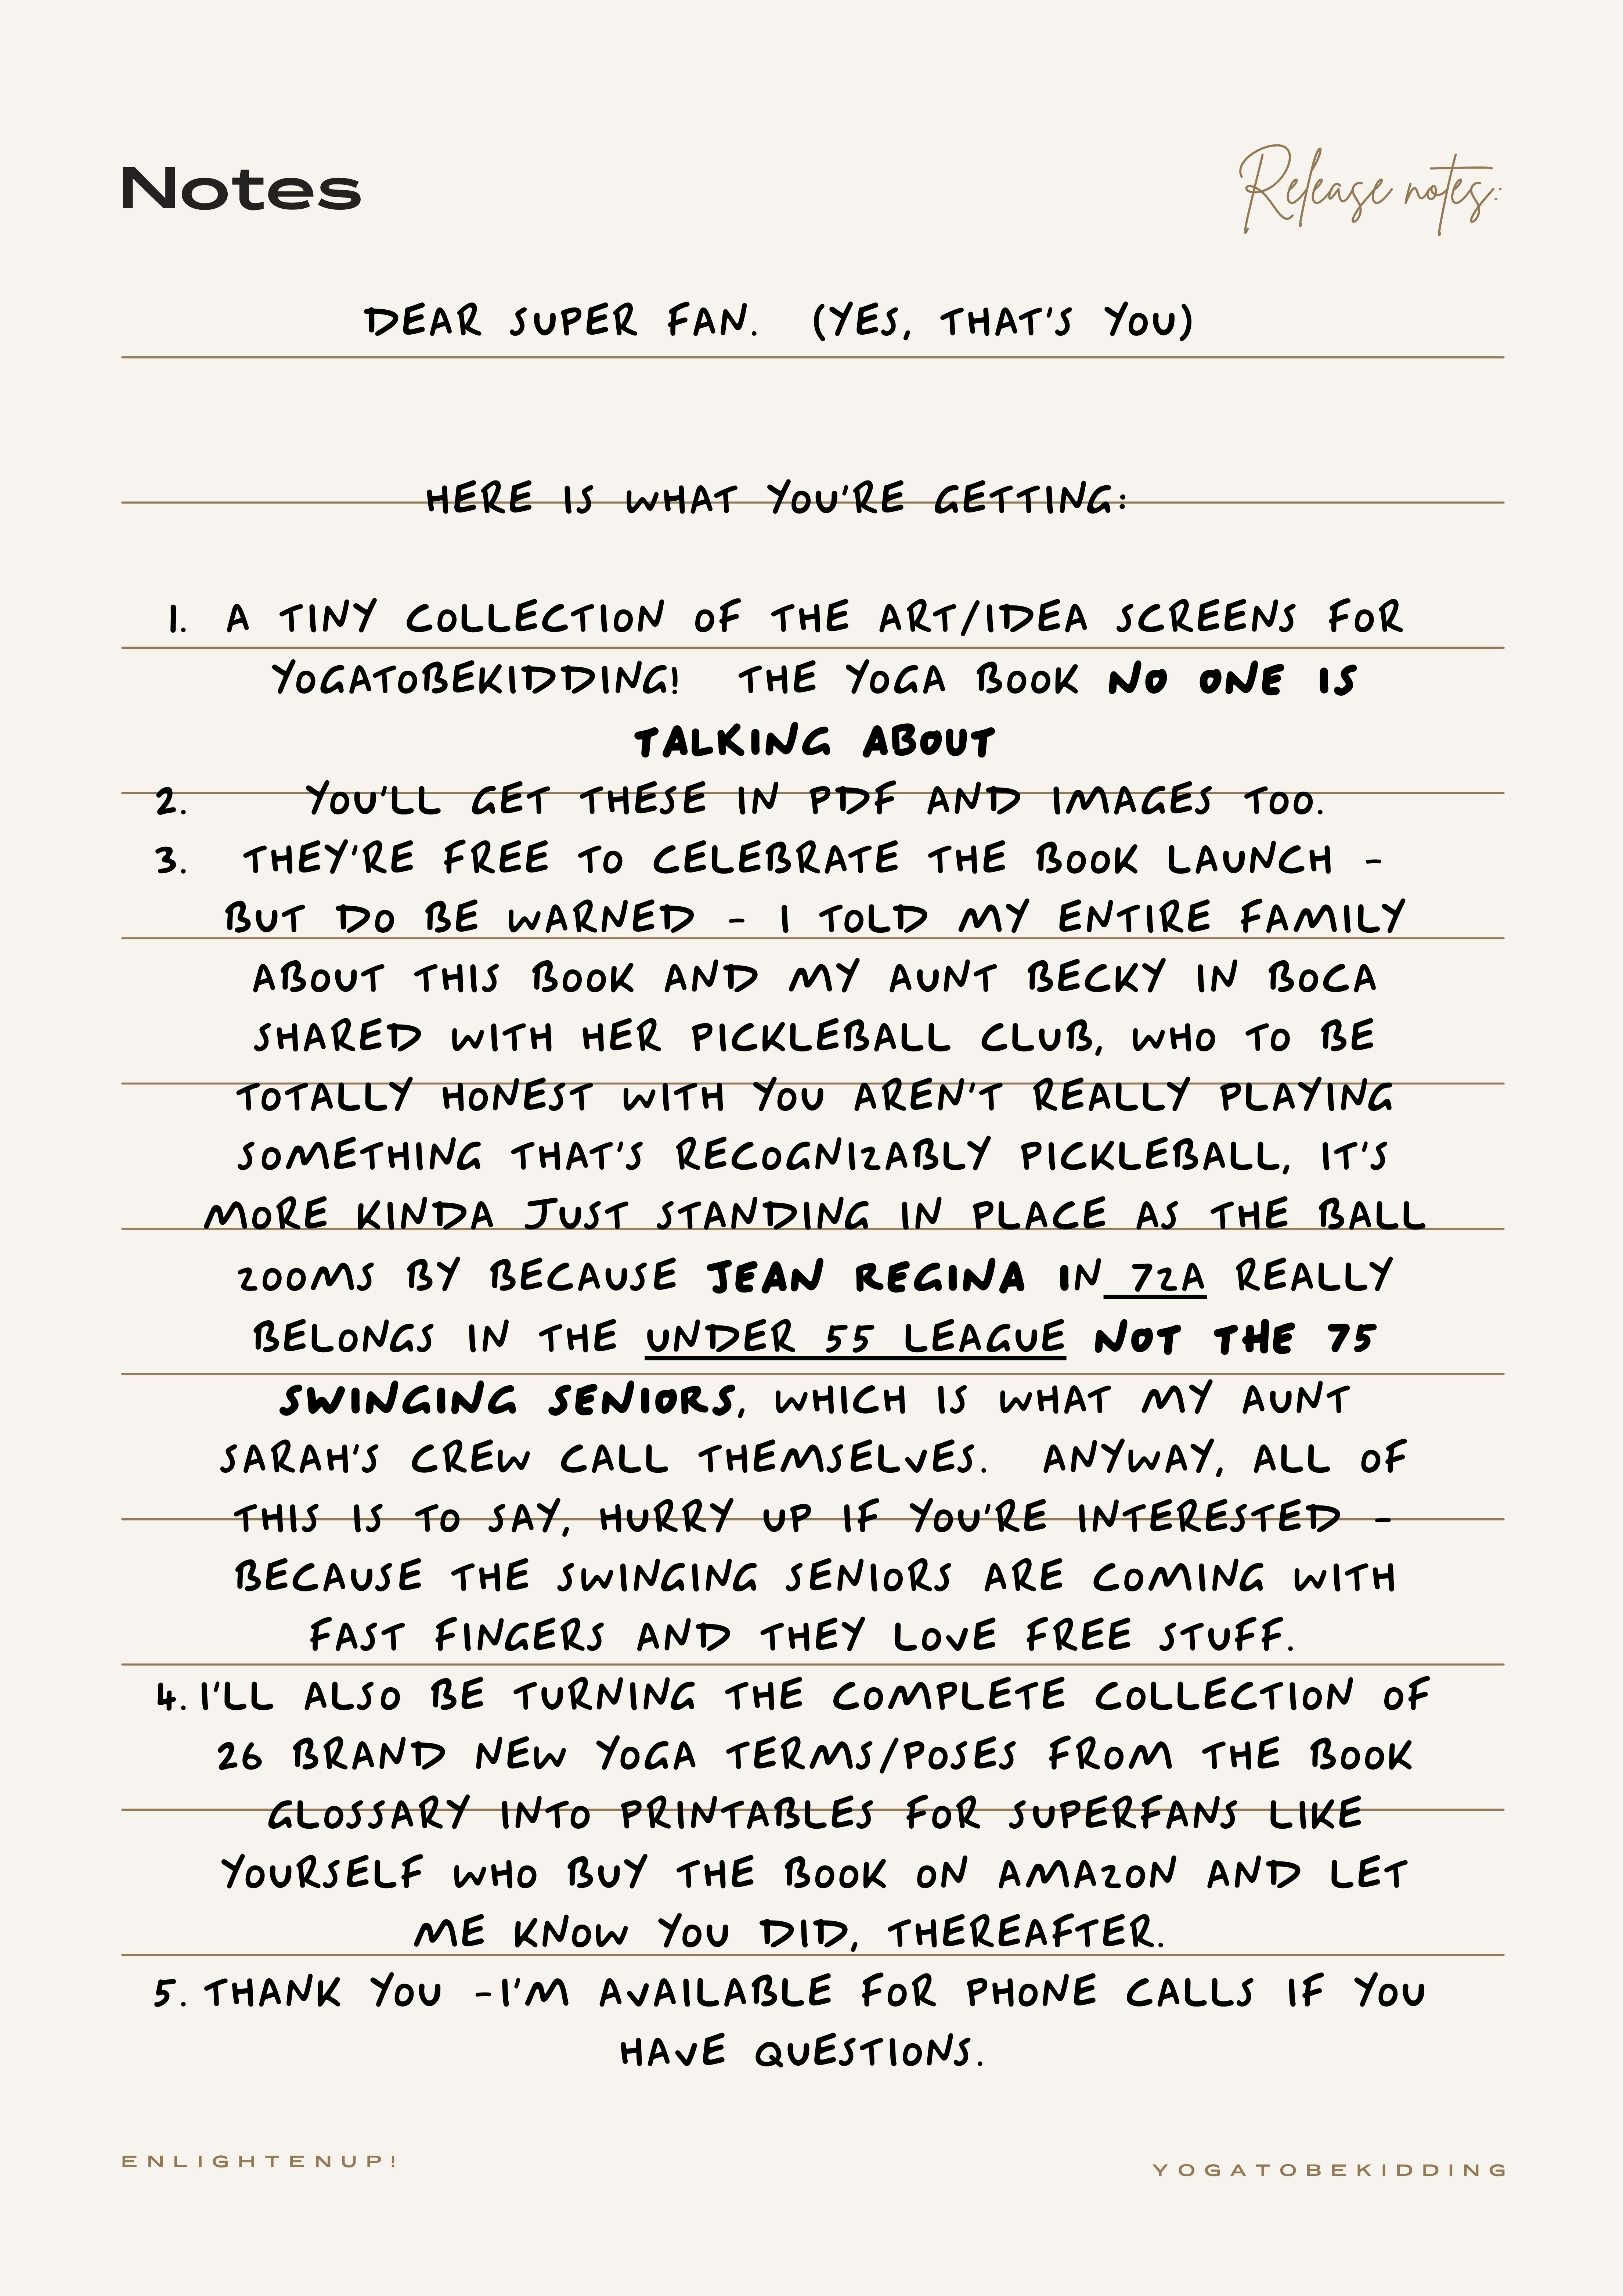 Notes
Release notes:
DEAR SUPER FAN. (YES, THAT'S YOU)
HERE IS WHAT YOU'RE GETTING:
1. A TINY COLLECTION OF THE ART/IDEA SCREENS FOR
YOGATOBEKIDDING! THE YOGA BOOK NO ONE IS
TALKING ABOUT
2. YOU'LL GET THESE IN PDF AND IMAGES TOO.
3. THEY'RE FREE TO CELEBRATE THE BOOK LAUNCH -
BUT DO BE WARNED - I TOLD MY ENTIRE FAMILY
ABOUT THIS BOOK AND MY AUNT BECKY IN BOCA
SHARED WITH HER PICKLEBALL CLUB, WHO TO BE
TOTALLY HONEST WITH YOU AREN'T REALLY PLAYING
SOMETHING THAT'S RECOGNIZABLY PICKLEBALL, IT'S
MORE KINDA JUST STANDING IN PLACE AS THE BALL
ZOOMS BY BECAUSE JEAN REGINA IN 72A REALLY
BELONGS IN THE UNDER 55 LEAGUE NOT THE 75
SWINGING SENIORS, WHICH IS WHAT MY AUNT
SARAH'S CREW CALL THEMSELVES. ANYWAY, ALL OF
THIS IS TO SAY, HURRY UP IF YOU'RE INTERESTED -
BECAUSE THE SWINGING SENIORS ARE COMING WITH
FAST FINGERS AND THEY LOVE FREE STUFF.
4. I'LL ALSO BE TURNING THE COMPLETE COLLECTION OF
26 BRAND NEW YOGA TERMS/POSES FROM THE BOOK
GLOSSARY INTO PRINTABLES FOR SUPERFANS LIKE
YOURSELF WHO BUY THE BOOK ON AMAZON AND LET
ME KNOW YOU DID, THEREAFTER.
5. THANK YOU -I'M AVAILABLE FOR PHONE CALLS IF YOU
HAVE QUESTIONS.
ENLIGHTENUP!
YOGATOBEKIDDING